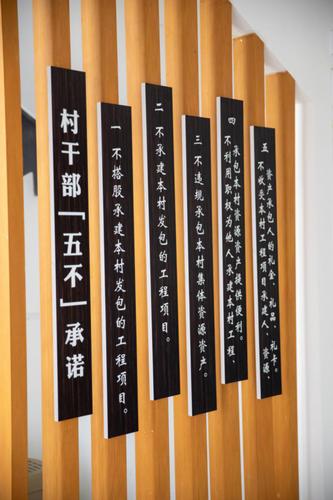 村干部「五不」承诺
一 不搭股承建本村发包的工程项目。
二 不承建本村发包的工程项目。
三 不违规承包本村集体资源资产。
四 不利用职权为他人承建本村工程、
承包本村资源资产提供便利。
五 不收受本村工程项目承建人、资源、
资产承包人的礼金、礼品、礼卡。